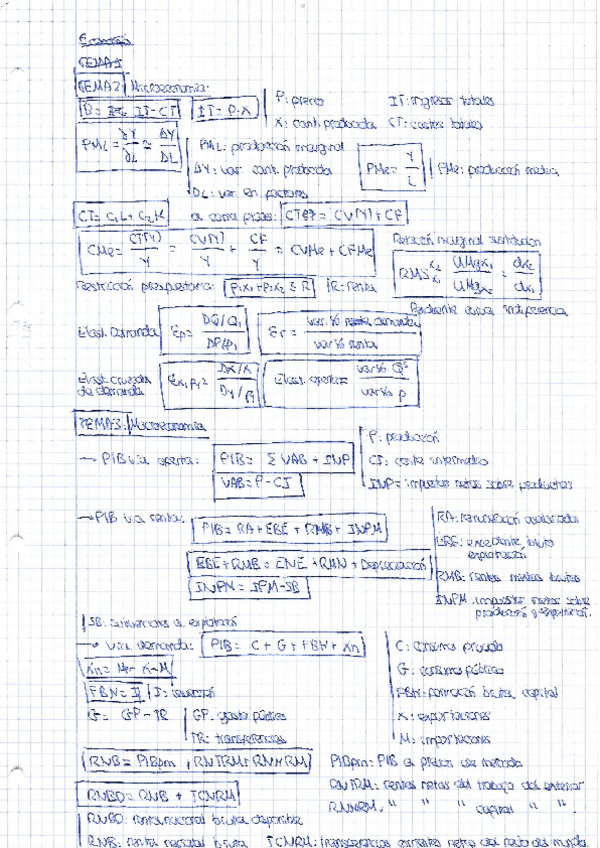 Economía
TEMA 1
TEMA 2: Microeconomía:
B = IT - CT IT = P·X P: precio IT: ingresos totales
X: cant. producida CT: costes totales
PML = ∂Y/∂L ≈ ΔY/DL PML: producción marginal
ΔY: var cant. producida PMe = Y/L PMe: producción media
DL: var en factores
CT = C1L + C2K a corto plazo: CTBP = CV(Y) + CF
CMe = CT(Y)/Y = CV(Y)/Y + CF/Y = CVMe + CFMe Relación marginal sustitución
RMS UMgx1/UMgx2 = dx2/dx1
Restricción presupuestaria: P1x1 + P2x2 ≤ R R: renta
Pendiente curva indiferencia
Elast. Demanda Ep = DQ/Q1 / DP/P1 Er = var % demanda / var % renta
Elast. cruzada de demanda Ex1P2 = DX/X / Elast. oferta = var % Q / var % P
TEMA 3: Macroeconomía
→ PIB vía oferta: PIB = Σ VAB + INP P: producción
VAB = P - CI CI: consumo intermedio
INP = impuestos netos sobre productos
→ PIB vía renta: PIB = RA + EBE + RMB + INPM RA: remuneración asalariados
EBE: excedente bruto explotación
EBE + RMB = ENE + RMN + Depreciación RMB: rentas mixtas brutas
INPM = IPM - SB INPM: impuestos netos sobre producción e importac.
SB: subvenciones a explotación
→ vía demanda: PIB = C + G + FBK + Xn C: consumo privado
Xn = X - M G: consumo público
FBK = I I: inversión FBK: formación bruta capital
G = GP - TR GP: gasto público X: exportaciones
TR: transferencias M: importaciones
RNB = PIBpm + RNTRM + RNKRM PIBpm: PIB a precios de mercado
RNTRM: rentas netas del trabajo del exterior
RNBD = RNB + TCNRM RNKRM: " " " capital " "
RNBD: renta nacional bruta disponible
RNB: renta nacional bruta TCNRM: transferencias corrientes netas del resto del mundo